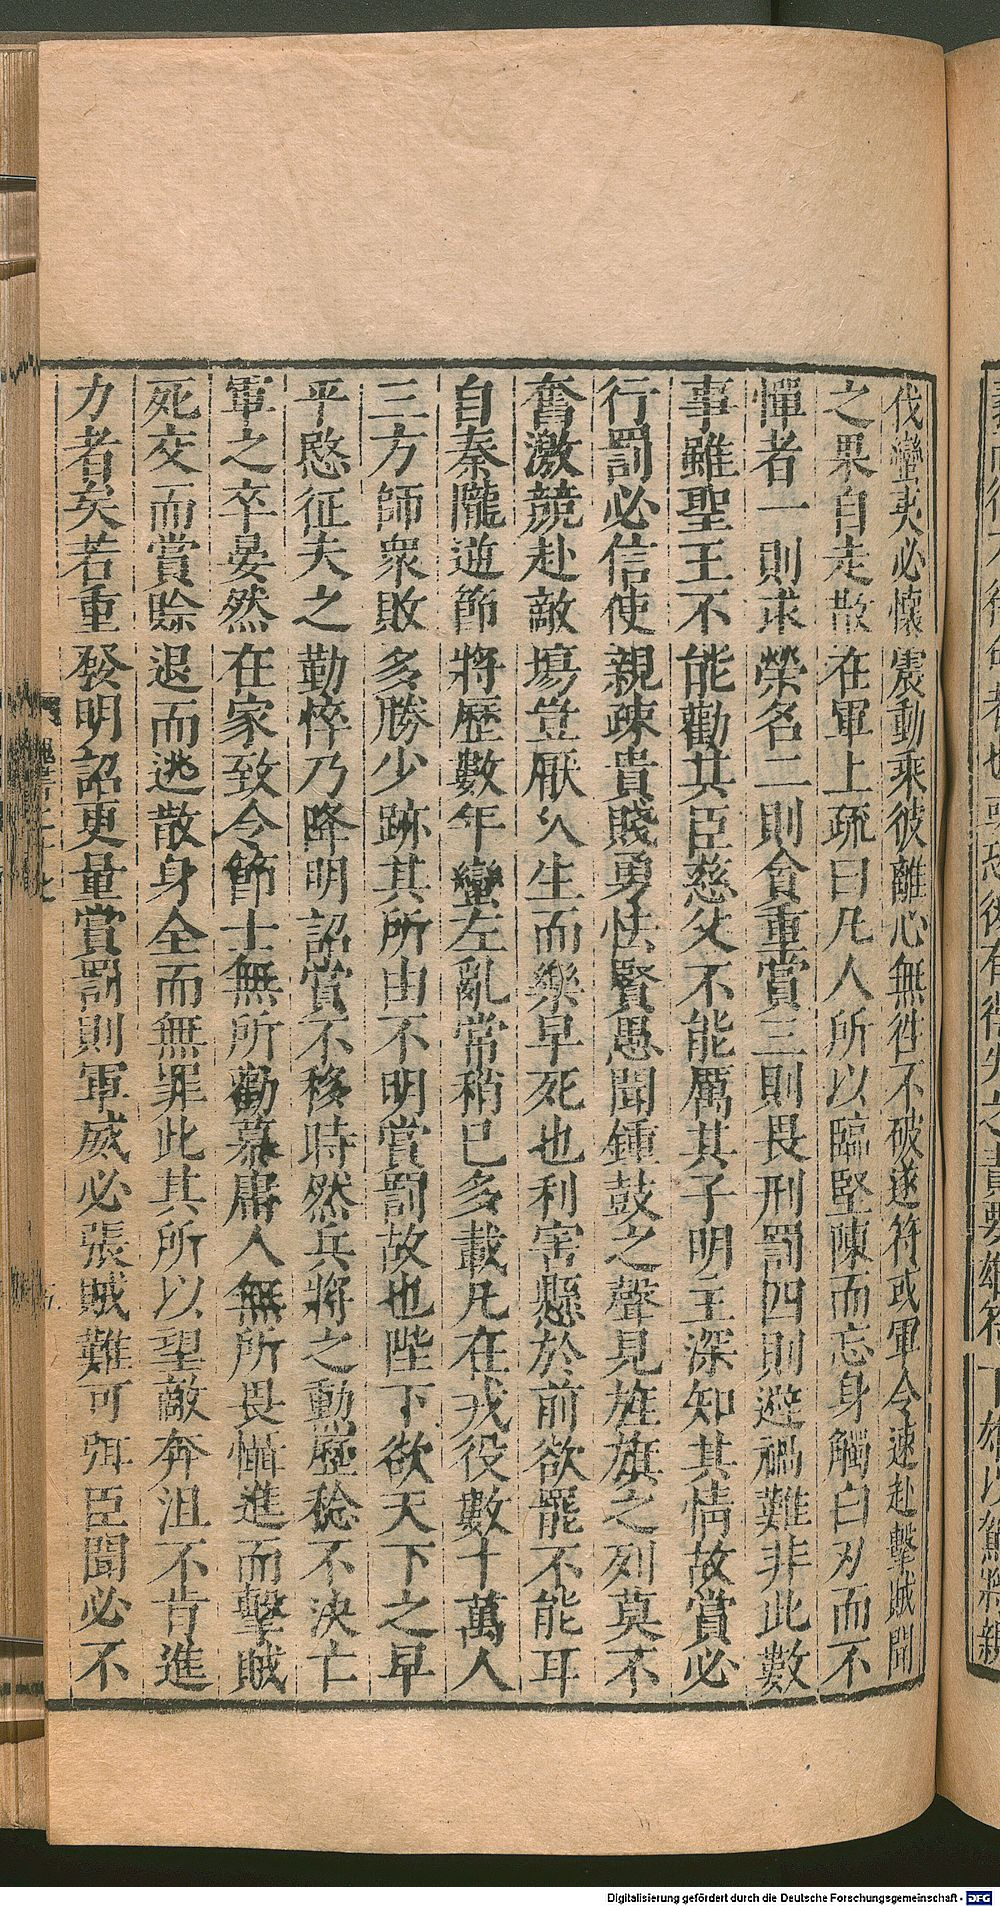 伐蠻夷必懷震動乘彼離心無往不破遂符或軍令速赴擊賊聞
之果自走散在軍上疏曰凡人所以臨堅陳而忘身觸白刃而不
憚者一則求榮名二則貪重賞三則畏刑罰四則避禍難非此數
事雖聖王不能勸其臣慈父不能厲其子明主深知其情故賞必
行罰必信使親疎貴賤勇怯賢愚聞鍾鼓之聲見旌旗之列莫不
奮激競赴敵塲豈厭久生而樂早死也利害懸於前欲罷不能耳
自秦隴逆節將歷數年蠻左亂常稍已多載凡在戎役數十萬人
三方師衆敗多勝少跡其所由不明賞罰故也陛下欲天下之早
平愍征夫之勤悴乃降明詔賞不移時然兵將之勳歷稔不決亡
軍之卒晏然在家致令節士無所勸慕庸人無所畏懾進而擊賊
死交而賞賒退而逃散身全而無罪此其所以望敵奔沮不肯進
力者矣若重發明詔更量賞罰則軍威必張賊難可弭臣聞必不
Digitalisierung gefördert durch die Deutsche Forschungsgemeinschaft - DFG